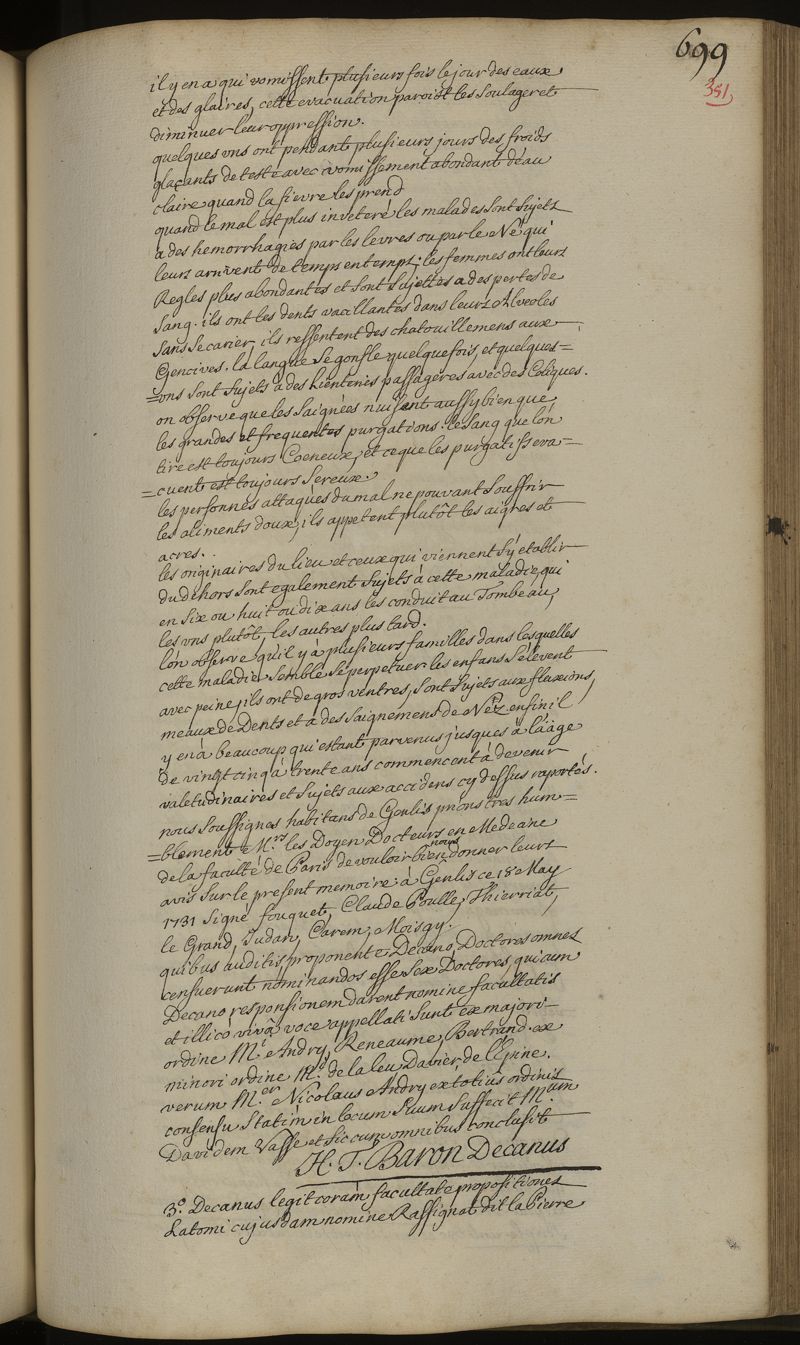 699
381
il y en a qui vomissent plusieurs fois le jour des eaux
et des glaires, cette evacuation paroist les soulager et
diminuer leur oppression.
quelques uns ont pendant plusieurs jours des froids
glaçants de teste avec vomissement abondant d'eau
claire quand la fievre les prend
quand le mal est plus inveteré les malades sont sujets
a des hemorrhagies par les levres ou par le Né qui
leurs arrivent de temps en temps; les femmes ont leurs
Regles plus abondantes et sont sujettes a des pertes de
sang. ils ont les dents vacillantes dans leurs Alveoles
sans se carier, ils ressentent des chatouillemens aux
Gencives. la langue se gonfle quelquefois, et quelques=
=uns sont sujets à des Lienteries passageres avec des Coliques.
on observe que les saignées nuisent aussy bien que
les grandes et frequentes purgations. le sang que l'on
tire est toujours Coeneux, et ce que les purgatifs eva=
=cuent est toujours sereux.
les personnes attaqués du mal ne pouvant souffrir
les aliments doux, ils appetent plutôt les aigres et
acres.
les originaires du lieu et ceux qui viennent s'y etablir
du dehors sont egalement sujets à cette maladie qui
en six ou huit ou dix ans les conduit au Tombeau,
les uns plutôt, les autres plus tard.
l'on observe qu'il y à plusieurs familles dans lesquelles
cette maladie semble se perpetuer. les enfans s'élevent
avec peine, ils ont de gros ventres, sont sujets aux fluxions,
meaux de Dents et a des saignemens de Néz. enfin il
y en à beaucoup qui estant parvenus jusques à l'aâge
de vingt cinq à trente ans commencent à devenir
valetudinaires et sujets aux accidens cy dessus raportés.
nous soussignés habitans de Genlis prions tres hum=
=blement Mrs. les Doyen Docteurs en Medecine
de la faculté de Paris de vouloir bien nous donner leurs
avis sur le present memoire à Genlis ce 18 May
1731 signé fouquet, Claude Poulle, Thierriat,
le Grand, Judan, Carem, Moisgy.
quibus auditis, proponente Decano, Doctores omnes
censuerunt nominandos esse sex Doctores qui cum
Decano responsionem darent nomine facultatis
et illicò vivâ voce appellati sunt ex majori
ordine Mi. Andry, Reneaume, Bertrand. ex
minori ordine Mi. de la leu Davier, de l'Epine.
verum Mer. Nicolaus Andry ex totius ordinis
consensu statim in locum suum suffecit Mum
Davidem Vasse et sic cum omnibus conclusit
H. T. Baron Decanus
3.º Decanus legit coram facultate propositiones
Latomi cujusdam nomine Rassignat dit la Pierre